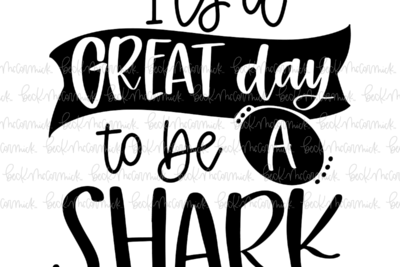 It's a
GREAT day
to be A
SHARK